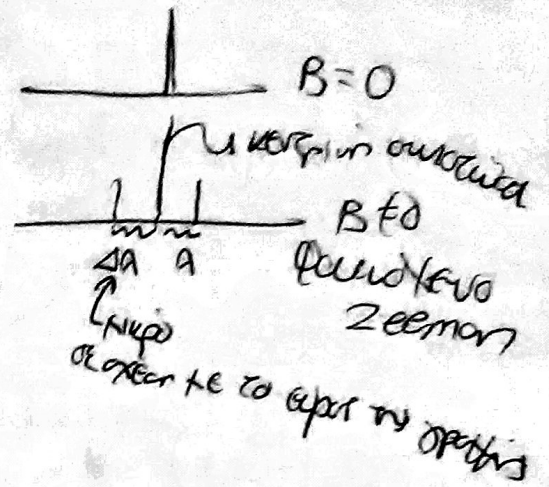 B=0
η κεντρική συχνότητα
B≠0
Δλ λ
φαινόμενο
Zeeman
μικρό
σε σχέση με το εύρος της γραμμής